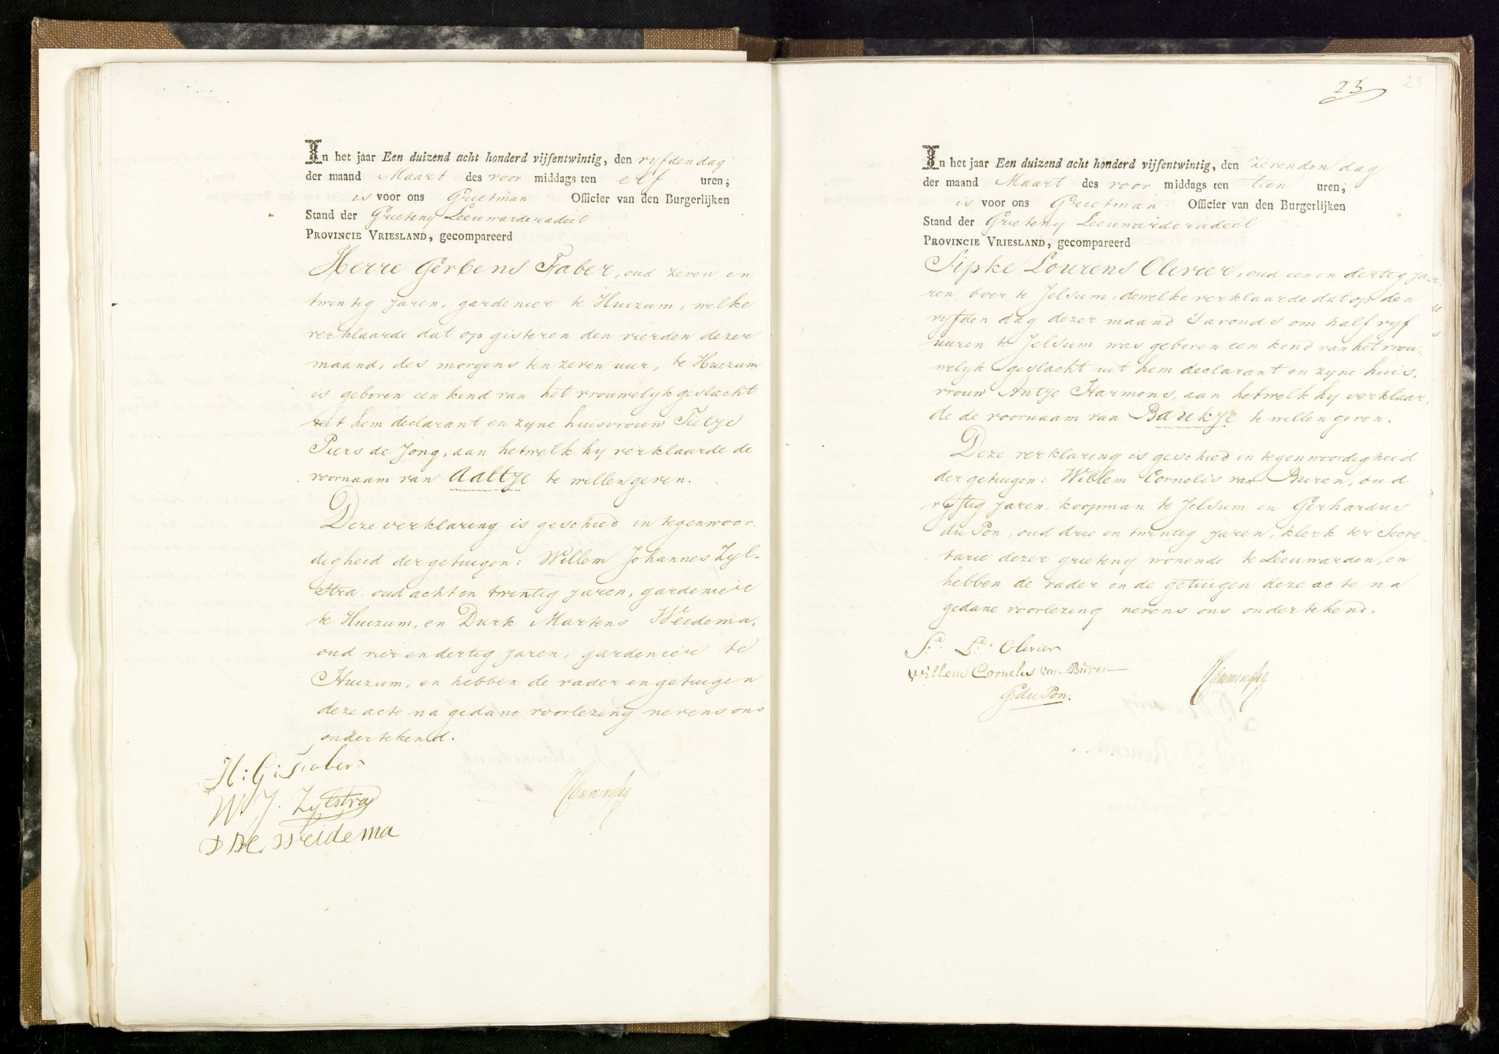 In het jaar Een duizend acht honderd vijfentwintig, den vyfden dag
der maand Maart des voor middags ten elf uren;
is voor ons Grietman Officier van den Burgerlijken
Stand der Grieteny Leeuwarderadeel
PROVINCIE VRIESLAND, gecompareerd
Herre Gerbens Faber, oud zeven en
twintig jaren, gardenier te Huizum, welke
verklaarde dat op gisteren den vierden dezer
maand, des morgens ten zeven uur, te Huizum
is geboren een kind van het vrouwelyk geslacht
uit hem declarant en zyne huisvrouw Tietje
Piers de Jong, aan hetwelk hy verklaarde de
voornaam van Aaltje te willen geven.
Deze verklaring is geschied in tegenwoor
digheid der getuigen: Willem Johannes Zyl-
stra oud acht en twintig jaren, gardenier
te Huizum, en Durk Martens Weidema,
oud vier en dertig jaren, gardenier te
Huizum, en hebben de vader en getuigen
deze acte na gedane voorlezing nevens ons
ondertekend.
H: G: Faber
W J. Zylstra
D M Weidema
23
23
In het jaar Een duizend acht honderd vijfentwintig, den zevenden dag
der maand Maart des voor middags ten tien uren;
is voor ons Grietman Officier van den Burgerlijken
Stand der Grieteny Leeuwarderadeel
PROVINCIE VRIESLAND, gecompareerd
Sipke Lourens Olivier, oud een en dertig ja-
ren, boer te Jelsum, dewelke verklaarde dat op den
vyfden dag dezer maand s'avonds om half vyf
uuren te Jelsum was geboren een kind van het vrou-
welyk geslacht uit hem declarant en zyne huis-
vrouw Antje Harmens, aan hetwelk hy verklaar-
de de voornaam van Baukje te willen geven.
Deze verklaring is geschied in tegenwoordigheid
der getuigen: Willem Cornelis van Buren, oud
vyftig jaren koopman te Jelsum en Gerhardus
du Pon, oud drie en twintig jaren, klerk ter Secre-
tarie dezer grieteny wonende te Leeuwarden, en
hebben de vader en de getuigen deze acte na
gedane voorlezing nevens ons ondertekend.
S. L. Olivier
Willem Cornelis van Büren
G du Pon.